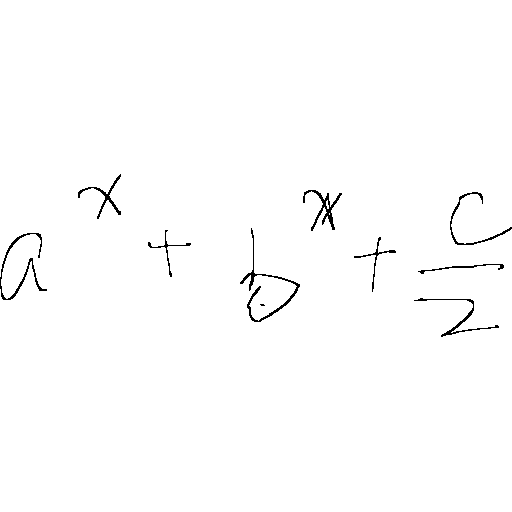 a^x + b^x + \frac{c}{2}